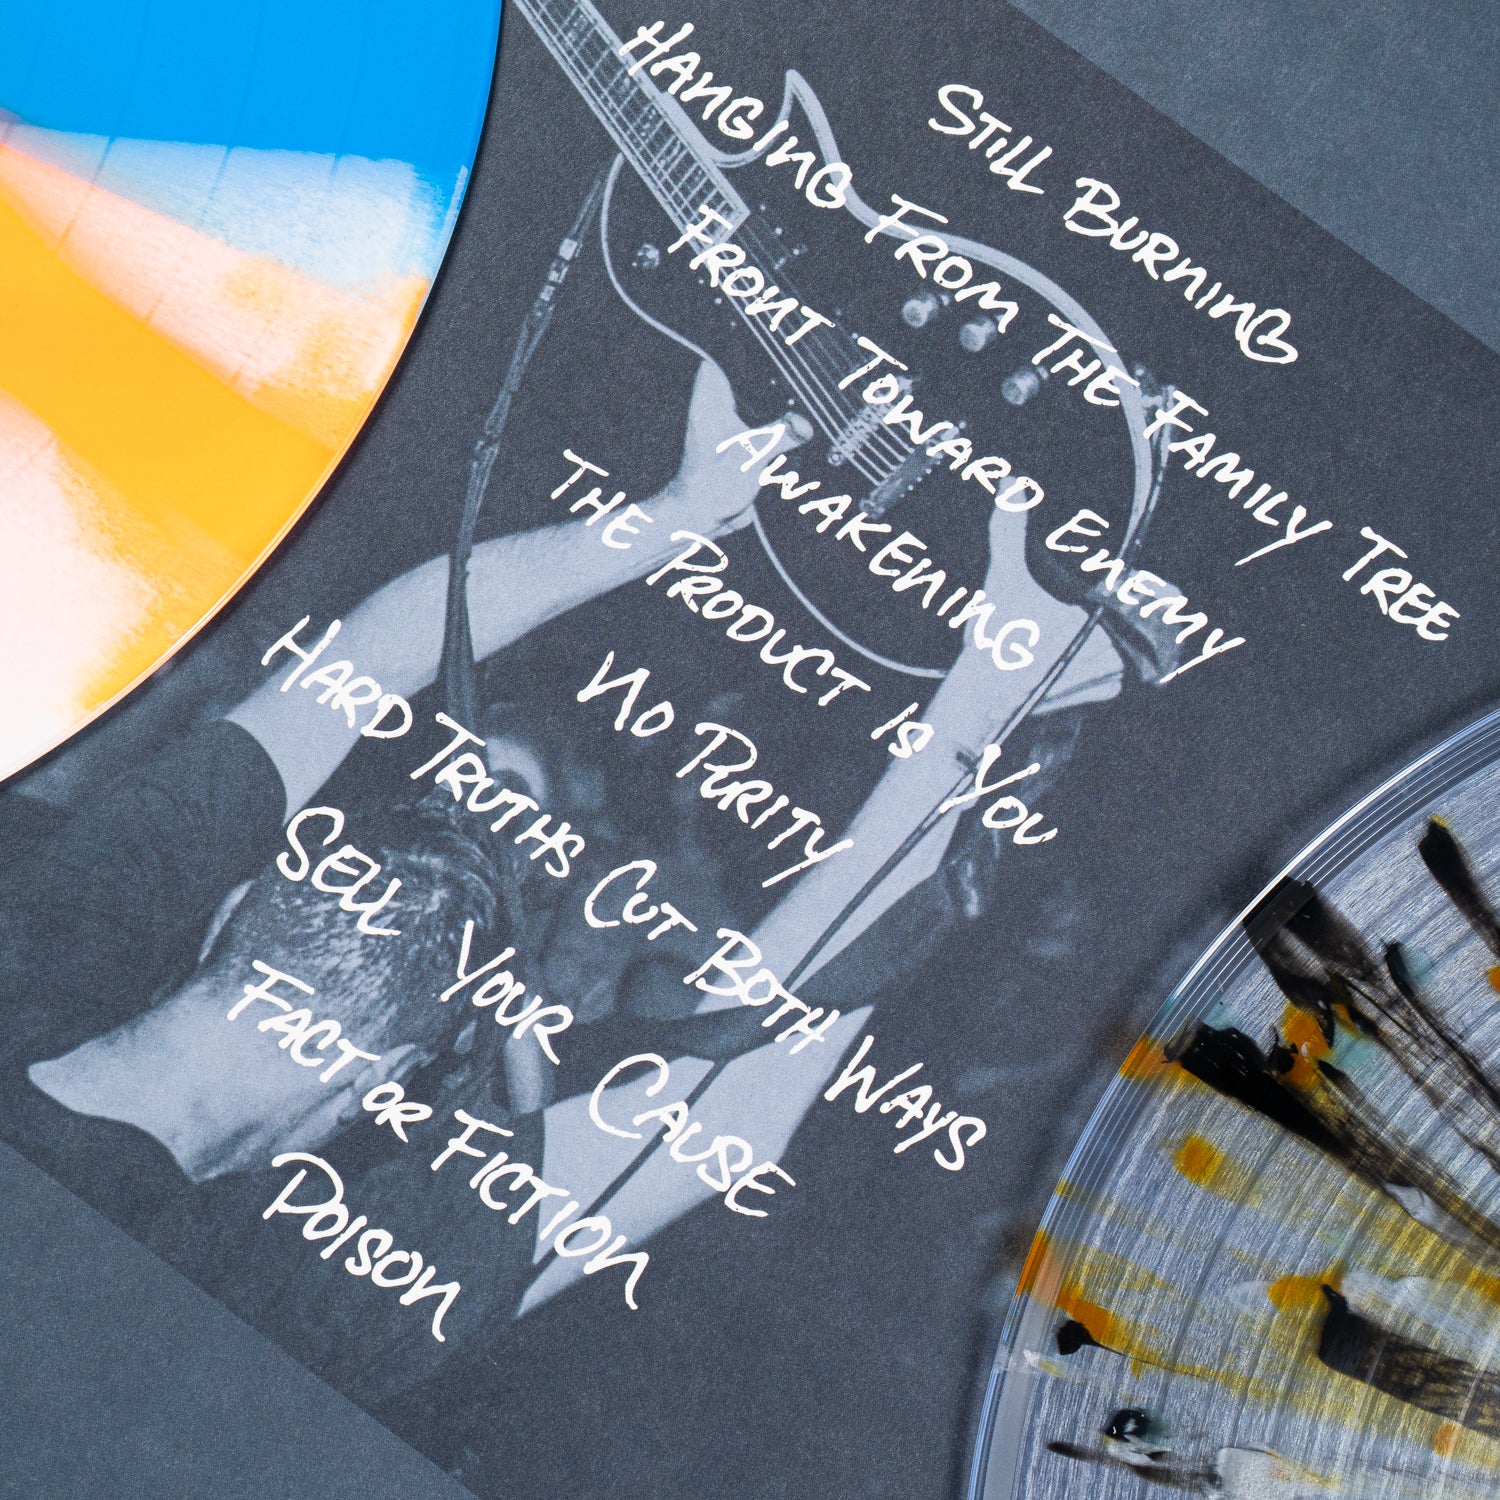 STILL BURNING
HANGING FROM THE FAMILY TREE
FRONT TOWARD ENEMY
AWAKENING
THE PRODUCT IS YOU
NO PURITY
HARD TRUTHS CUT BOTH WAYS
SELL YOUR CAUSE
FACT OR FICTION
POISON